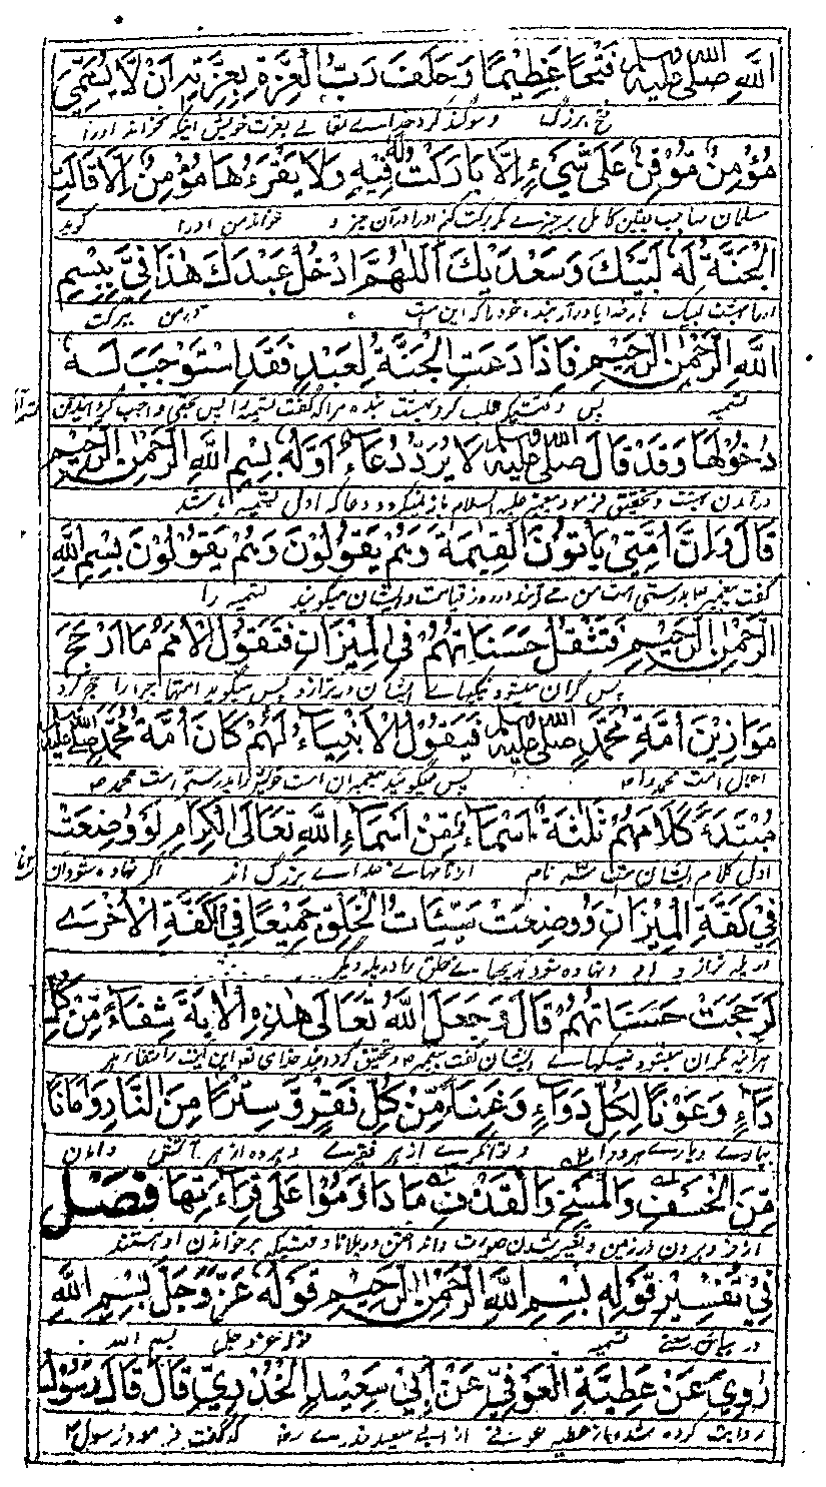 اللَّهِ صلى الله عليه وسلم فَتْحًا عَظِيمًا وَحَلَفَ رَبُّ الْعِزَّةِ بِعِزَّتِهِ اَنْ لَّا يُسَمِّيَ
فتح بزرگ و سوگند کرد خداے تعالے بعزت خویش اینکه نخواند اورا
مُؤْمِنٌ مُّوْقِنٌ عَلَى شَيْءٍ اِلَّا بَارَكْتُ لَهُ فِيْهِ وَلَا يَقْرَءُهَا مُؤْمِنٌ اِلَّا قَالَتِ
مسلمان صاحب یقین کامل بر چیزے که برکت کنم اورا در آن چیز و نخواند من اورا گوید
الْجَنَّةُ لَهٗ لَبَّيْكَ وَسَعْدَيْكَ اَللّٰهُمَّ ادْخُلْ عَبْدَكَ هٰذَا فِيَّ بِبِسْمِ
اورا بهشت لبیک بار خدایا در آر بنده خود را که این ست در من ببرکت
اللهِ الرَّحْمٰنِ الرَّحِيْمِ فَاِذَا دَعَتِ الْجَنَّةُ لِعَبْدٍ فَقَدِ اسْتَوْجَبَ لَهٗ
تسمیه پس وقتیکه طلب کرد بهشت بنده را
دُخُوْلَهَا وَقَدْ قَالَ صلى الله عليه وسلم لَا يُرَدُّ دُعَاءٌ اَوَّلُهٗ بِسْمِ اللهِ الرَّحْمٰنِ الرَّحِيْمِ
در آمدن بهشت و تحقیق فرمود پیغمبر علیه السلام باز نمیگردد دعا که اول تسمیه باشد
قَالَ وَاِنَّ اُمَّتِيْ يَأْتُوْنَ الْقِيٰمَةَ وَهُمْ يَقُوْلُوْنَ وَهُمْ يَقُوْلُوْنَ بِسْمِ اللهِ
گفت پیغمبر بدرستی امت من مے آیند در روز قیامت و ایشان میگویند تسمیه را
الرَّحْمٰنِ الرَّحِيْمِ فَتَثْقُلُ حَسَنَاتُهُمْ فِي الْمِيْزَانِ فَتَقُوْلُ الْاُمَمُ مَا اَرْجَحَ
پس گران میشود نیکیهاے ایشان در ترازو پس میگوید امتها چرا
مَوَازِيْنَ اُمَّةِ مُحَمَّدٍ صلى الله عليه وسلم فَيَقُوْلُ الْاَنْبِيَاءُ لَهُمْ كَانَ اُمَّةُ مُحَمَّدٍ صلى الله عليه
امت محمد را پس میگویند پیغمبران امت محمد
مُبْتَدَءُ كَلَامِهِمْ ثَلٰثَةُ اَسْمَاءٍ مِّنْ اَسْمَاءِ اللهِ تَعَالَى الْكِرَامِ لَوْ وُضِعَتْ
اول کلام ایشان سه نام از نامهاے خداے بزرگ اند اگر نهاده شود آن
فِيْ كَفَّةِ الْمِيْزَانِ وَوُضِعَتْ سَيِّئَاتُ الْخَلْقِ جَمِيْعًا فِي الْكَفَّةِ الْاُخْرٰے
در پله ترازو و نهاده شود بدیهاے خلق را در پله دیگر
لَرَجَحَتْ حَسَنَاتُهُمْ قَالَ وَجَعَلَ اللهُ تَعَالَى هٰذِهِ الْاٰيَةَ شِفَاءً مِّنْ كُلِّ
هرآئینه گران میشود نیکیهاے ایشان گفت پیغمبر و تحقیق گردانید خدای تعالی این آیت را شفا از هر
دَاءٍ وَعَوْنًا لِكُلِّ دَوَاءٍ وَغِنَاءً مِّنْ كُلِّ فَقْرٍ وَّسِتْرًا مِنَ النَّارِ وَاَمَانًا
بیمارے و یارے هر دوا را و توانگرے از هر فقرے و پرده از هر آتش و امان
مِّنَ الْخَسْفِ وَالْمَسْخِ وَالْقَذْفِ مَا دَامُوْا عَلٰى قِرَاءَتِهَا فَصْل
از فرو بردن در زمین و تغیر شدن صورت وقتیکه بر خواندن او هستند
فِيْ تَفْسِيْرِ قَوْلِهٖ بِسْمِ اللهِ الرَّحْمٰنِ الرَّحِيْمِ قَوْلُهٗ عَزَّ وَجَلَّ بِسْمِ اللهِ
در بیان معنے تسمیه قوله عز و جل بسم الله
رُوِيَ عَنْ عَطِيَّةِ الْعَوْفِيِّ عَنْ اَبِيْ سَعِيْدٍ الْخُدْرِيِّ قَالَ قَالَ رَسُوْلُ
روایت کرده شده از عطیه عوفے از ابی سعید خدرے که گفت فرمود رسول